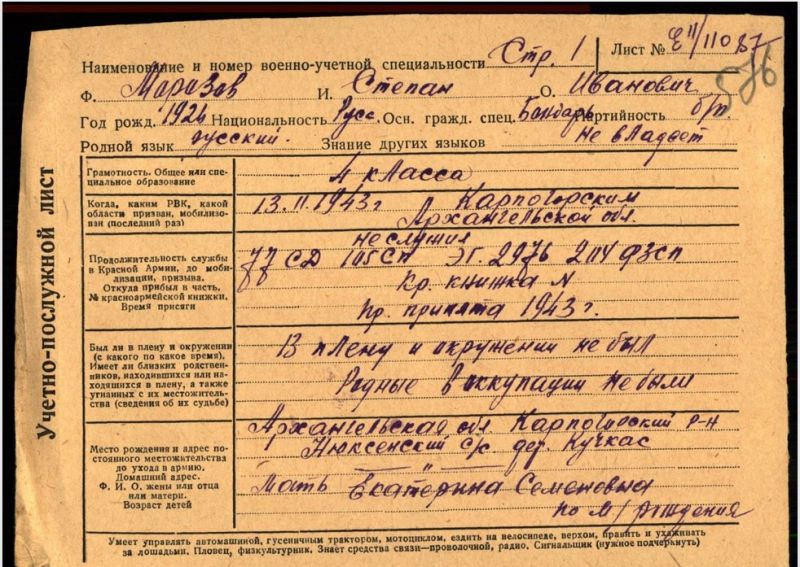 Наименование и номер военно-учетной специальности Стр. 1 Лист № Е II/11087
576
Ф. Моразов И. Степан О. Иванович
Год рожд. 1924 Национальность Русс. Осн. гражд. спец. Бондарь Партийность б/п
Родной язык русский. Знание других языков не владеет
Учетно-послужной лист
Грамотность. Общее или специальное образование
4 класса
Когда, каким РВК, какой
области призван, мобилизо-
ван (последний раз)
13.II.1943 г Карпогорским
Архангельской обл.
Продолжительность службы
в Красной Армии, до мо-
билизации, призыва.
Откуда прибыл в часть,
№ красноармейской книжки.
Время присяги
не служил
77 СД 105 СП ЭГ. 2976 204 ФЗСП
Кр. книжка N
Кр. принята 1943 г.
Был ли в плену и окружении
(с какого по какое время).
Имеет ли близких родствен-
ников, находившихся или на-
ходящихся в плену, а также
угнанных с их местожитель-
ства (сведения об их судьбе)
В плену и окружении не был
Родные в оккупации не были
Место рождения и адрес по-
стоянного местожительства
до ухода в армию.
Домашний адрес.
Ф. И. О. жены или отца
или матери.
Возраст детей
Архангельская обл Карпогорский р-н
Нюксенский с/с дер. Кучкас
— " —
Мать Екатерина Семеновна
по м/рождения
Умеет управлять автомашиной, гусеничным трактором, мотоциклом, ездить на велосипеде, верхом, править и ухаживать
за лошадьми. Пловец, физкультурник. Знает средства связи—проволочной, радио. Сигнальщик (нужное подчеркнуть)